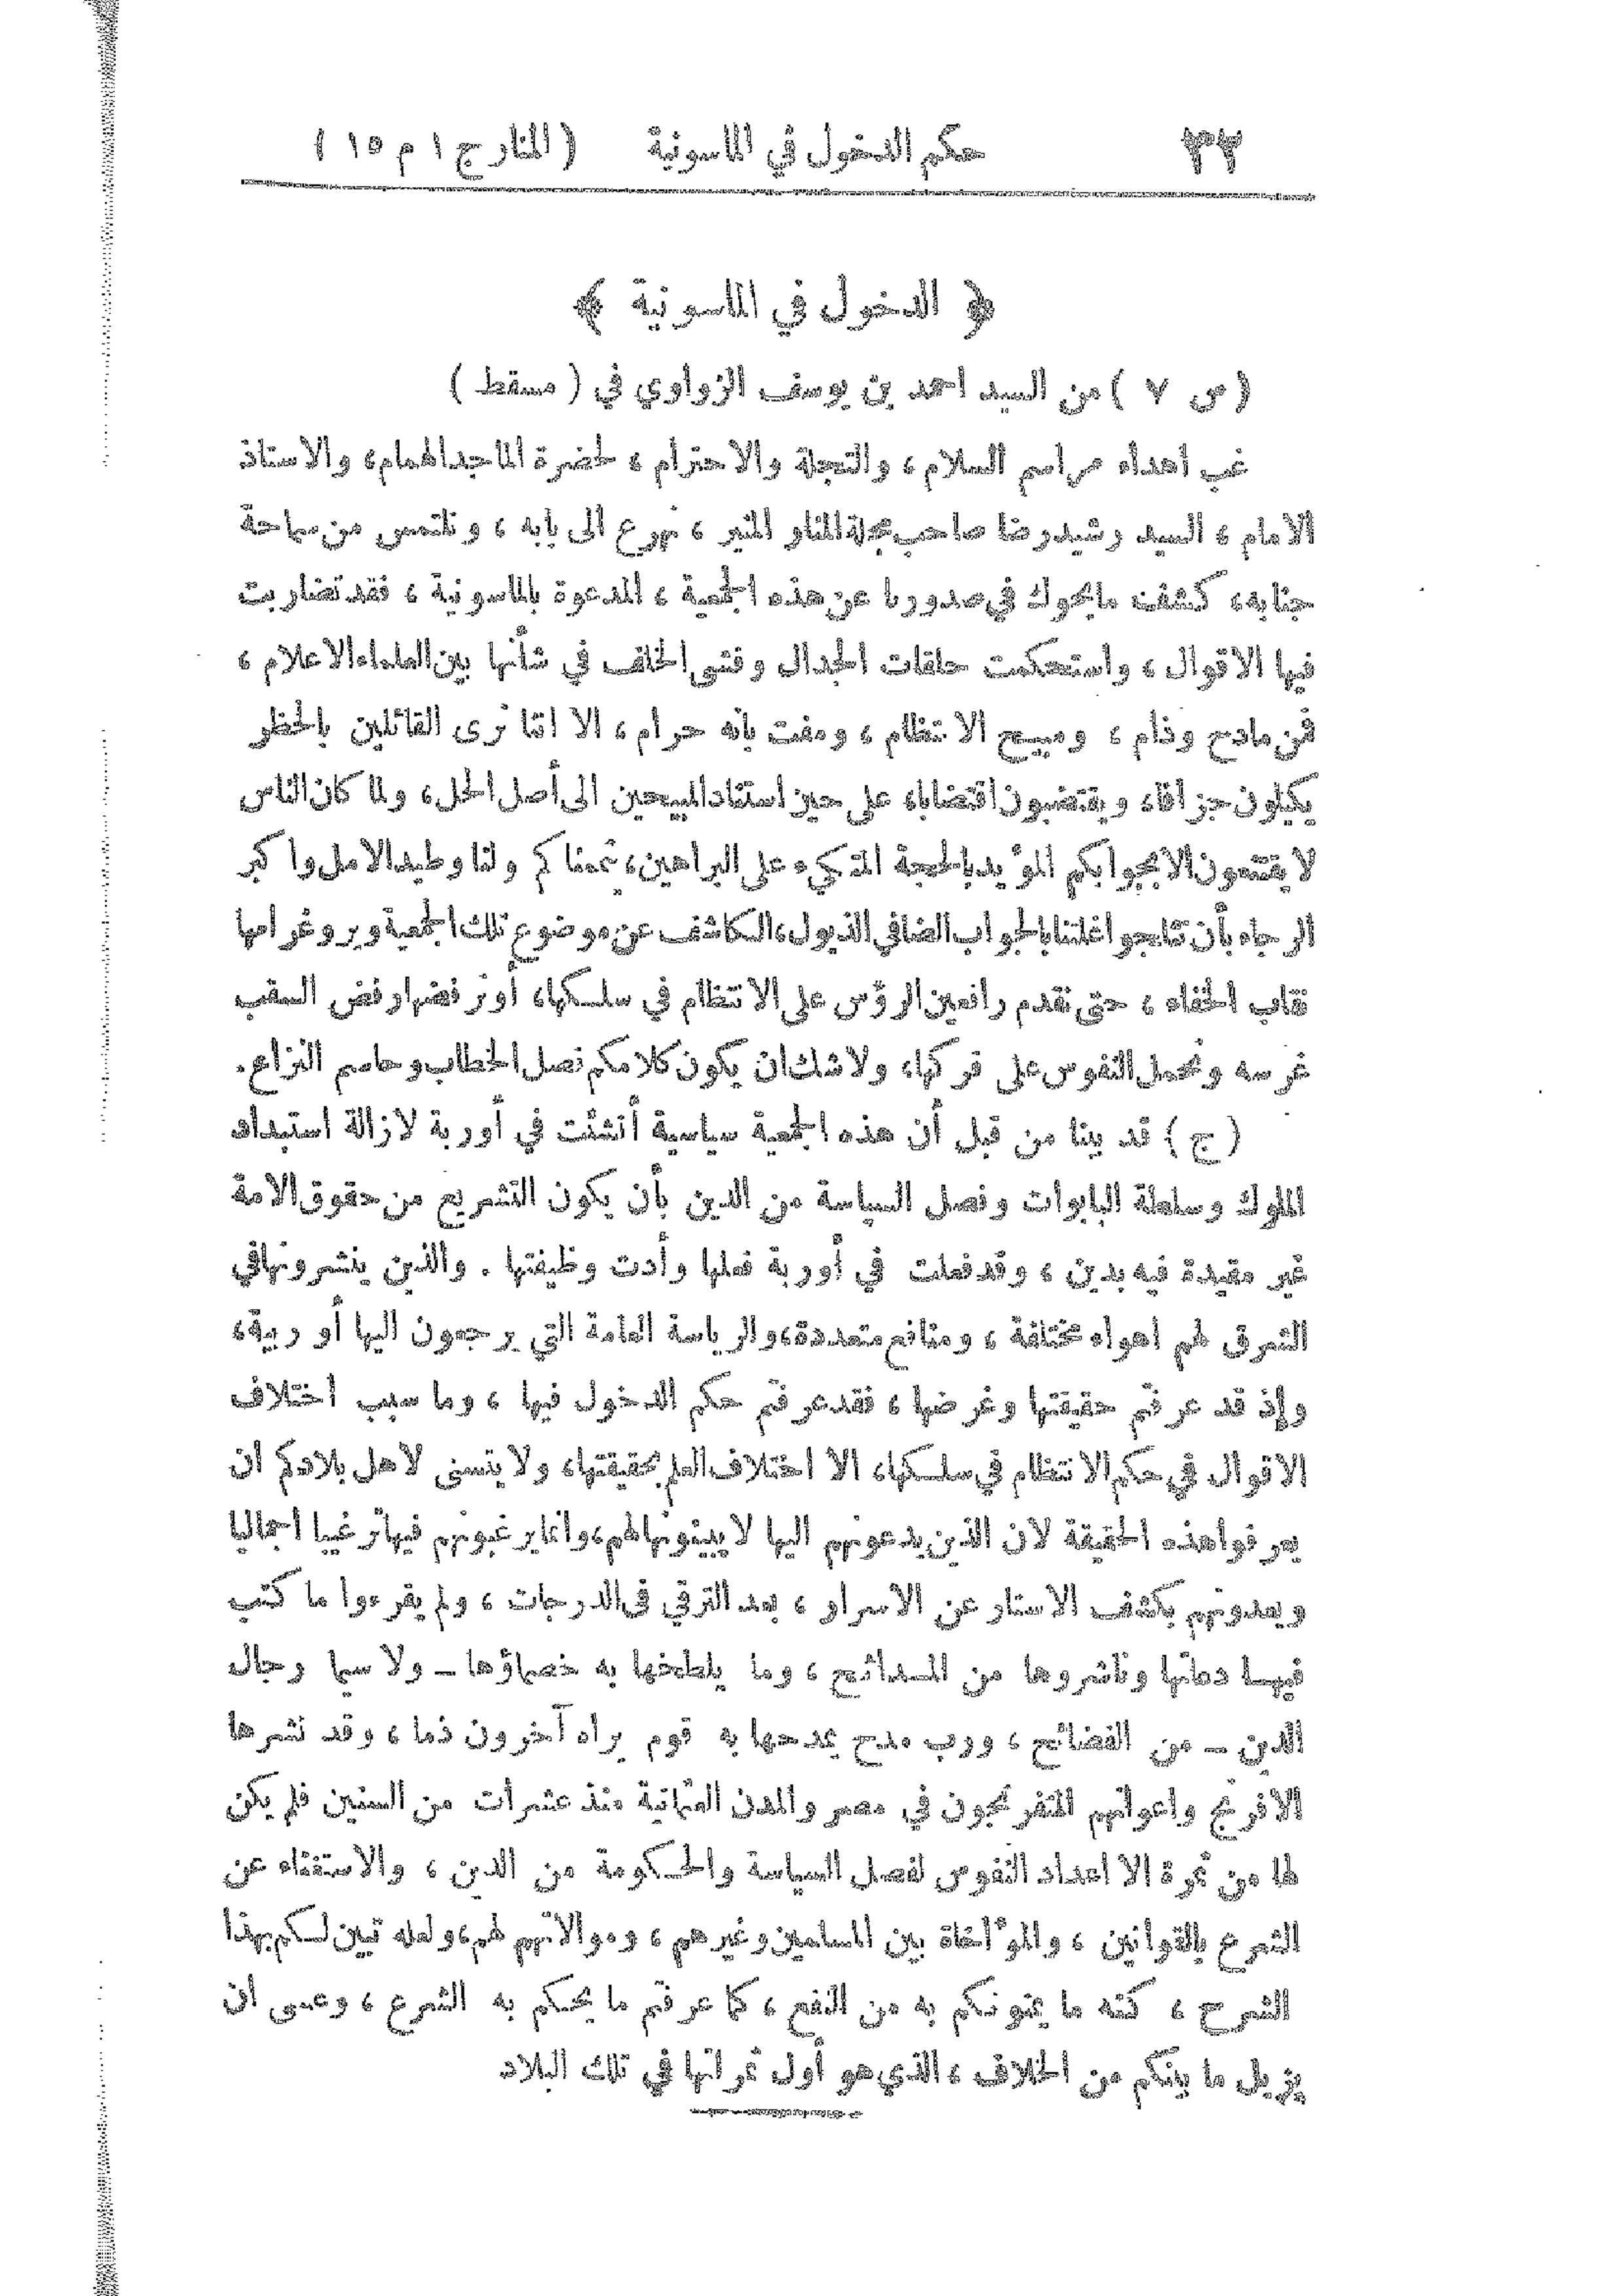 ٣٢ حكم الدخول في الماسونية (المنار ج ١ م ١٥)
﴿ الدخول في الماسونية ﴾
(س ٧) من السيد احمد بن يوسف الزواوي في (مسقط)
غب اهداء مراسم السلام، والتجلة والاحترام، لحضرة الماجد الهمام، والاستاذ
الامام، السيد رشيد رضا صاحب مجلة المنار المنير، نهرع الى بابه، ونلتمس من سماحة
جنابه، كشف ما يحوك في صدورنا عن هذه الجمعية، المدعوة بالماسونية، فقد تضاربت
فيها الاقوال، واستحكمت حلقات الجدال وفشى الخلف في شأنها بين العلماء الاعلام،
فمن مادح وذام، ومبيح الانتظام، ومفت بانه حرام، الا اننا نرى القائلين بالحظر
يكيلون جزافا، ويقتضبون اقتضابا، على حين استناد المبيحين الى أصل الحل، ولما كان الناس
لا يقتنعون الا بجوابكم المؤيد بالحجة المتكيء على البراهين، يممناكم ولنا وطيد الامل واكبر
الرجاء بأن تثلجوا غلتنا بالجواب الضافي الذيول، الكاشف عن موضوع تلك الجمعية وبروغرامها
نقاب الخفاء، حتى نقدم رافعين الرؤس على الانتظام في سلكها، أو نرفضها رفض السقب
غرسه ونحمل النفوس على تركها، ولا شك ان يكون كلامكم فصل الخطاب وحاسم النزاع.
(ج) قد بينا من قبل أن هذه الجمعية سياسية أنشئت في أوربة لازالة استبداد
الملوك وسلطة البابوات وفصل السياسة من الدين بأن يكون التشريع من حقوق الامة
غير مقيدة فيه بدين، وقد فعلت في أوربة فعلها وأدت وظيفتها. والذين ينشرونها في
الشرق لهم اهواء مختلفة، ومنافع متعددة، والرياسة العامة التي يرجعون اليها أوربية،
وإذ قد عرفتم حقيقتها وغرضها، فقد عرفتم حكم الدخول فيها، وما سبب اختلاف
الاقوال في حكم الانتظام في سلكها، الا اختلاف العلم بحقيقتها، ولا يتسنى لاهل بلادكم ان
يعرفوا هذه الحقيقة لان الذين يدعونهم اليها لا يبينونها لهم، وانما يرغبونهم فيها ترغيبا اجماليا
ويعدونهم بكشف الاستار عن الاسرار، بعد الترقي في الدرجات، ولم يقرءوا ما كتب
فيها دعاتها وناشروها من المدائح، وما يلطخها به خصماؤها ــ ولا سيما رجال
الدين ــ من الفضائح، ورب مدح يمدحها به قوم يراه آخرون ذما، وقد نشرها
الافرنج واعوانهم المتفرنجون في مصر والمدن العثمانية منذ عشرات من السنين فلم يكن
لها من ثمرة الا اعداد النفوس لفصل السياسة والحكومة من الدين، والاستغناء عن
الشرع بالقوانين، والمؤاخاة بين المسلمين وغيرهم، وموالاتهم لهم، ولعله تبين لكم بهذا
الشرح، كنه ما يمنونكم به من النفع، كما عرفتم ما يحكم به الشرع، وعسى ان
يزيل ما بينكم من الخلاف، الذي هو أول ثمراتها في تلك البلاد